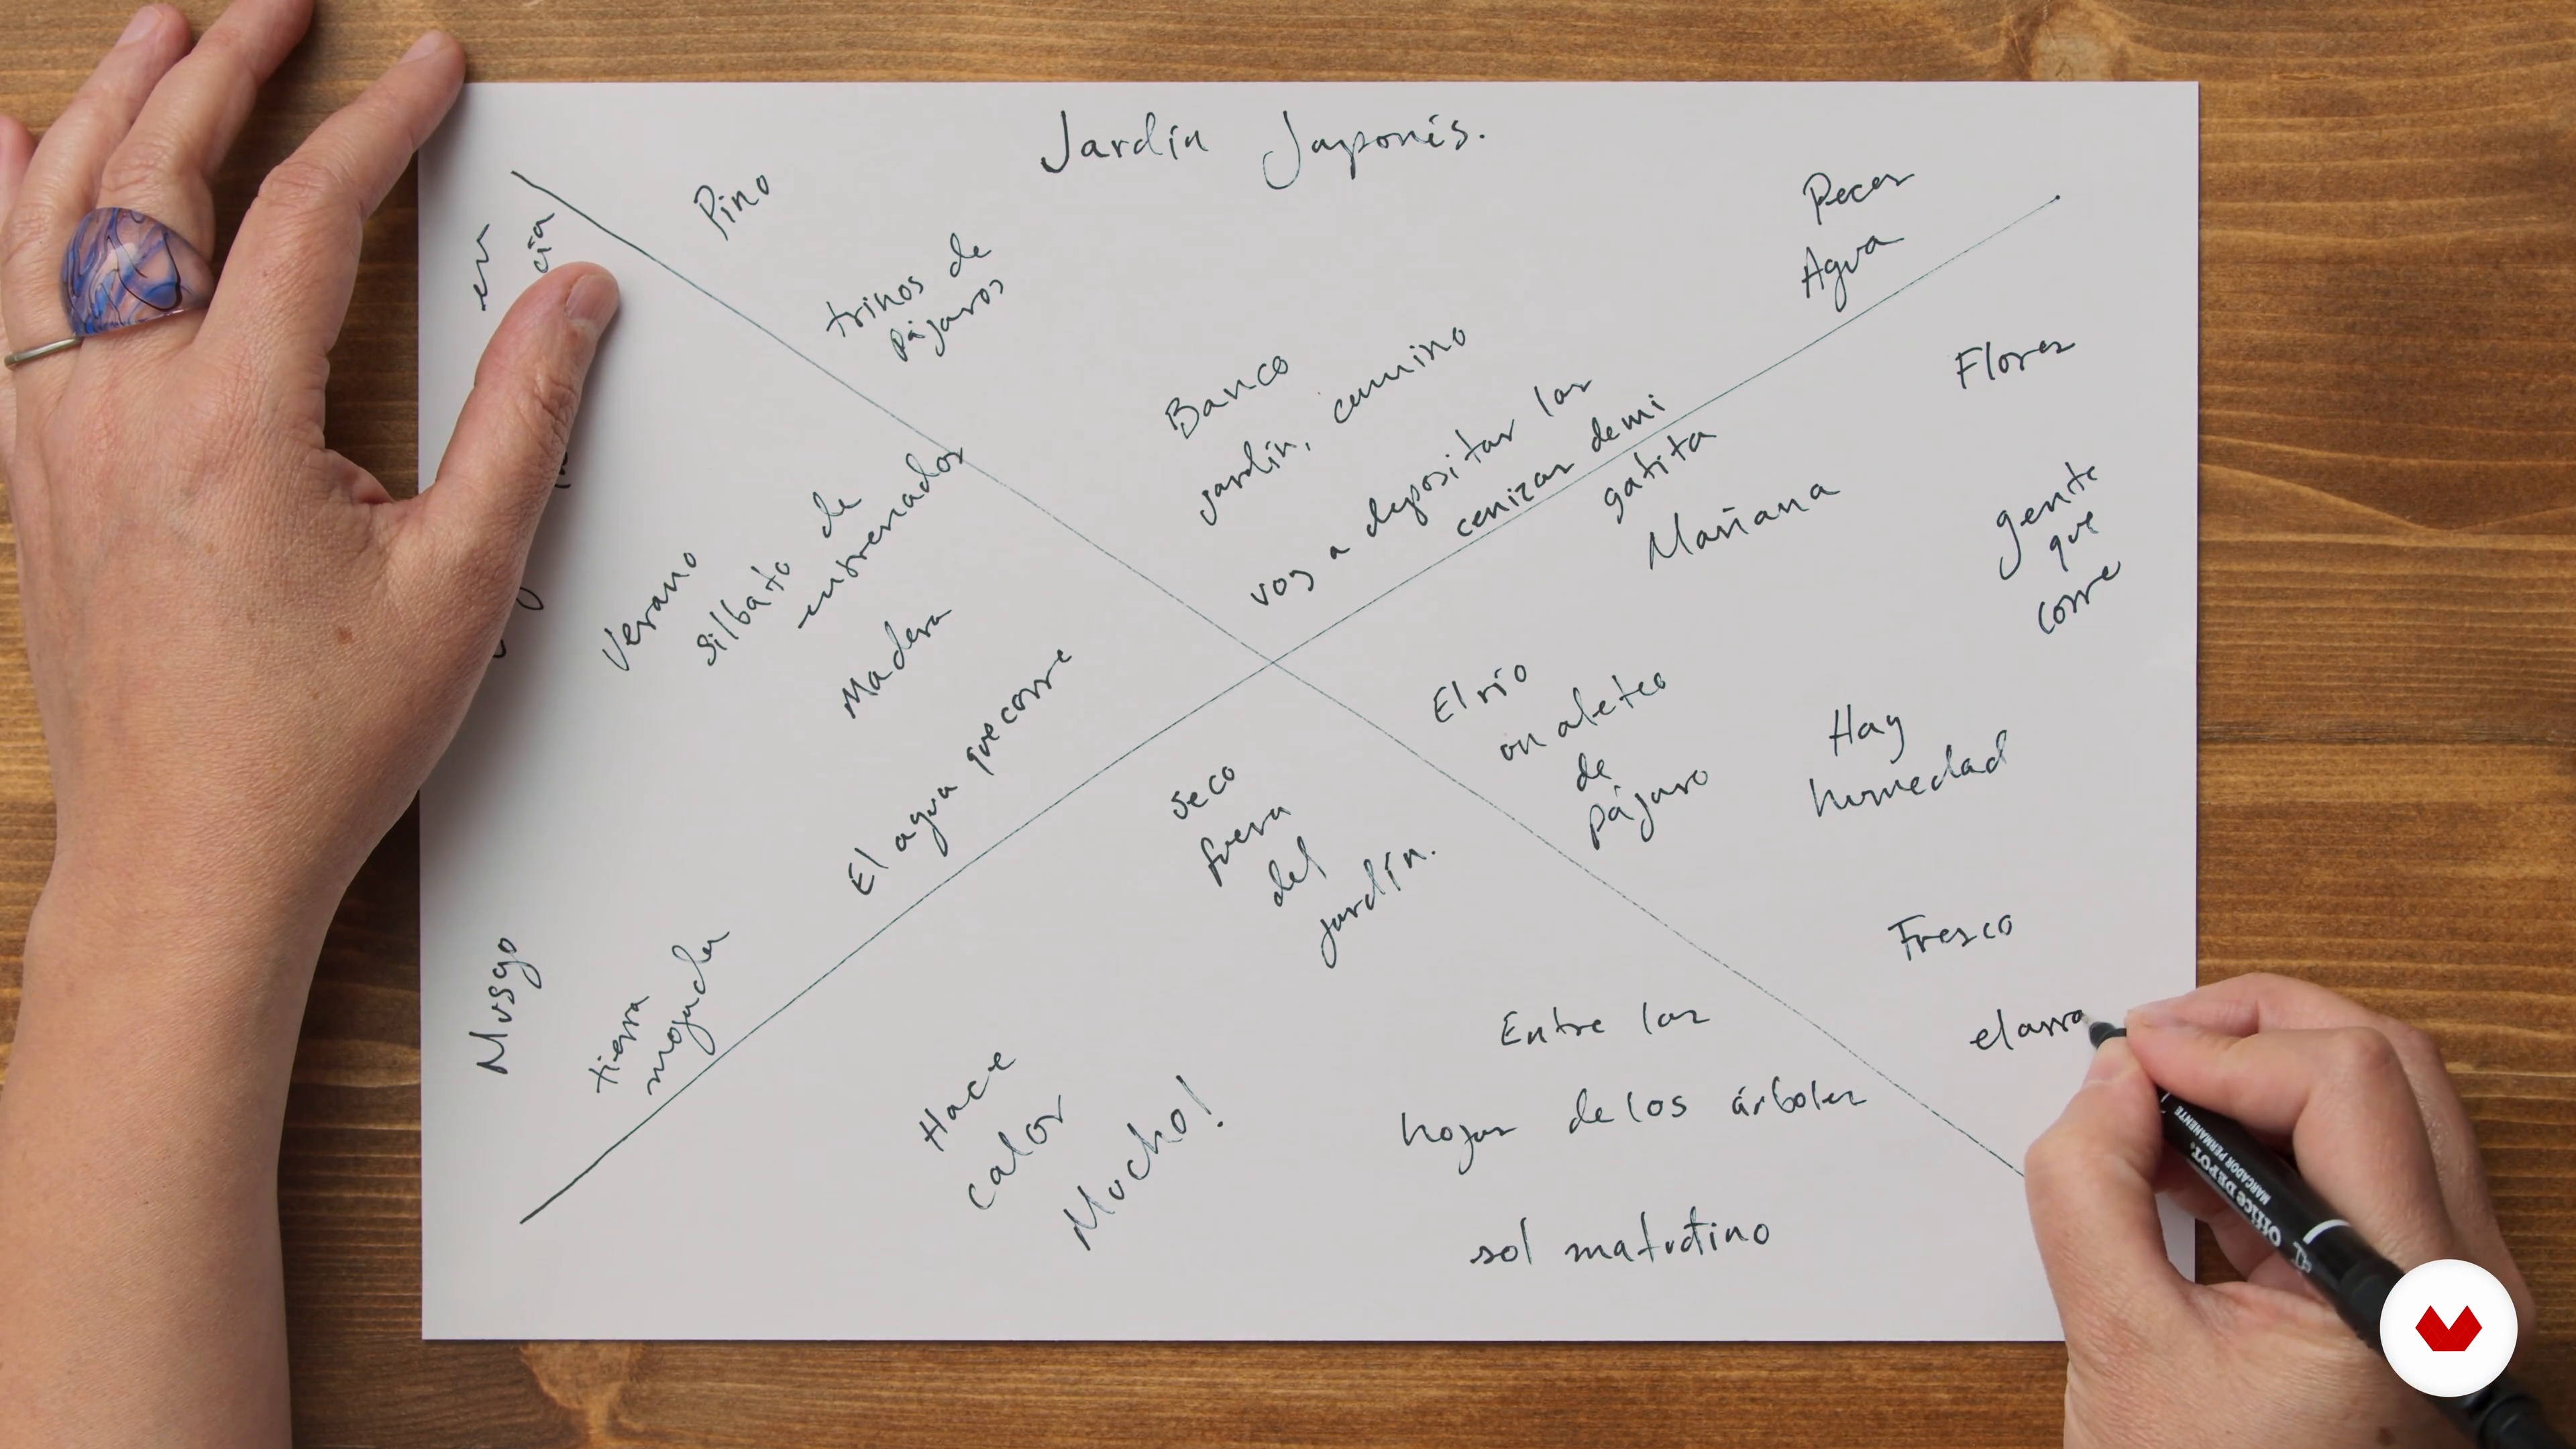 Jardín Japonés.
Pino
trinos de
pájaros
Peces
Agua
Banco
jardín, camino
voy a depositar las
cenizas de mi
gatita
Mañana
Flores
gente
que
corre
Verano
silbato de
entrenador
Madera
El agua que corre
Musgo
tierra
mojada
El río
un aleteo
de
pájaro
Hay
humedad
Fresco
el arro
seco
fuera
del
jardín.
Hace
calor
Mucho!
Entre las
hojas de los árboles
sol matutino
Office DEPOT.
MARCADOR PERMANENTE